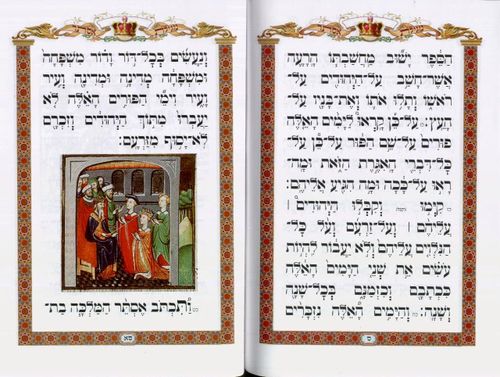 הַסֵּפֶר יָשׁוּב מַחֲשַׁבְתּוֹ הָרָעָה
אֲשֶׁר־חָשַׁב עַל־הַיְּהוּדִים עַל־
רֹאשׁוֹ וְתָלוּ אֹתוֹ וְאֶת־בָּנָיו עַל־
הָעֵץ: כו עַל־כֵּן קָרְאוּ לַיָּמִים הָאֵלֶּה
פוּרִים עַל־שֵׁם הַפּוּר עַל־כֵּן עַל־
כָּל־דִּבְרֵי הָאִגֶּרֶת הַזֹּאת וּמָה־
רָאוּ עַל־כָּכָה וּמָה הִגִּיעַ אֲלֵיהֶם:
כז קִיְּמוּ וְקִבְּלוּ הַיְּהוּדִים ׀
עֲלֵיהֶם ׀ וְעַל־זַרְעָם וְעַל כָּל־
הַנִּלְוִים עֲלֵיהֶם וְלֹא יַעֲבוֹר לִהְיוֹת
עֹשִׂים אֵת שְׁנֵי הַיָּמִים הָאֵלֶּה
כִּכְתָבָם וְכִזְמַנָּם בְּכָל־שָׁנָה
וְשָׁנָה: כח וְהַיָּמִים הָאֵלֶּה נִזְכָּרִים
מ
וְנַעֲשִׂים בְּכָל־דּוֹר וָדוֹר מִשְׁפָּחָה
וּמִשְׁפָּחָה מְדִינָה וּמְדִינָה וְעִיר
וָעִיר וִימֵי הַפּוּרִים הָאֵלֶּה לֹא
יַעַבְרוּ מִתּוֹךְ הַיְּהוּדִים וְזִכְרָם
לֹא־יָסוּף מִזַּרְעָם:
כט וַתִּכְתֹּב אֶסְתֵּר הַמַּלְכָּה בַת־
מא